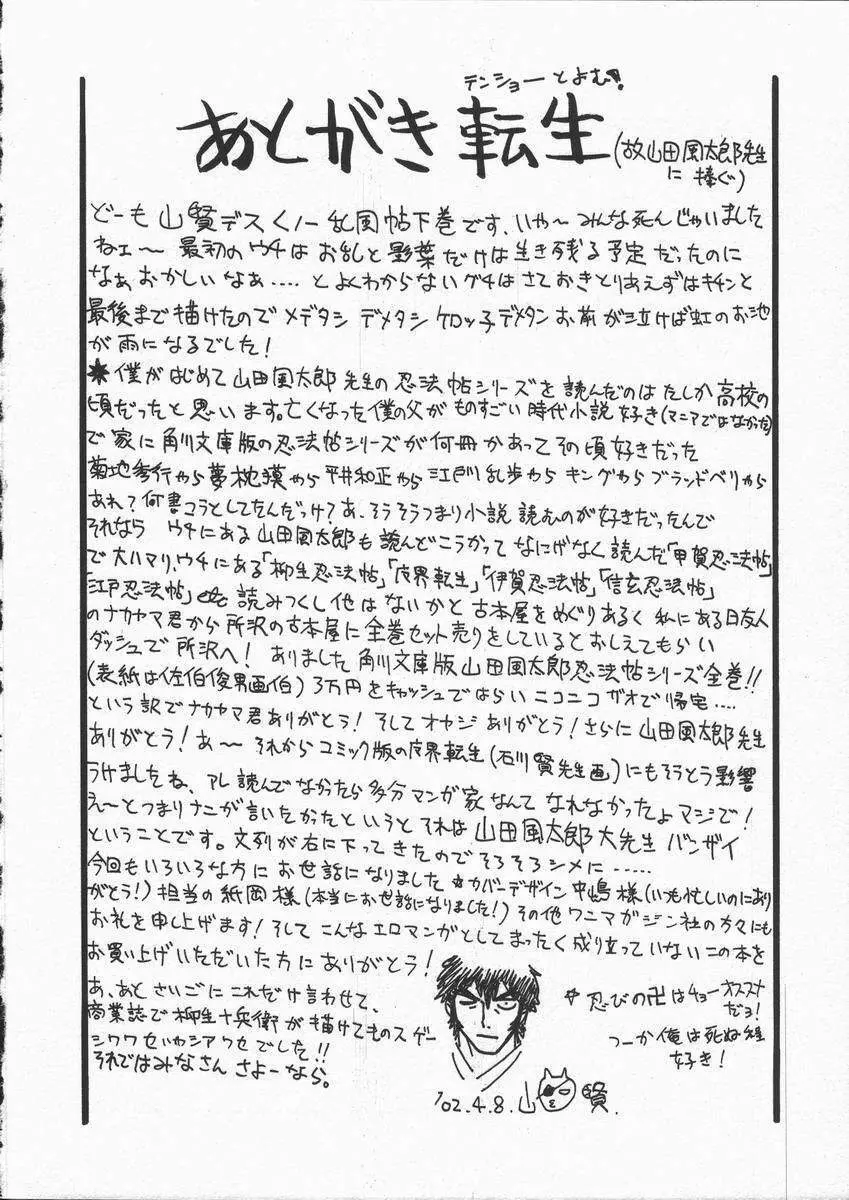 テンショーとよむ!
あとがき転生
(故山田風太郎先生
に捧ぐ)
どーも山賢デスくノ一乱風帖下巻です、いや〜みんな死んじゃいました
ねェ〜 最初のウチはお乱と影葉だけは生き残る予定だったのに
なぁおかしいなぁ....とよくわからないグチはさておきとりあえずはキチンと
最後まで描けたのでメデタシ デメタシ ケロッ子デメタンお前が泣けば虹のお池
が雨になるでした!
★僕がはじめて山田風太郎先生の忍法帖シリーズを読んだのはたしか高校の
頃だったと思います。亡くなった僕の父がものすごい時代小説好き(マニアではなかった)
で家に角川文庫版の忍法帖シリーズが何冊かあってその頃好きだった
菊地秀行やら夢枕獏やら平井和正やら江戸川乱歩やらキングやらブランドベリやら
あれ?何書コラとしてたんだっけ?あ、そうそうつまり小説読むのが好きだったんで
それなら ウチにある山田風太郎も読んどこうかってなにげなく読んだ「甲賀忍法帖」
で大ハマリ、ウチにある「柳生忍法帖」「魔界転生」「伊賀忍法帖」「信玄忍法帖」
「江戸忍法帖」etc読みつくし他はないかと古本屋をめぐりあるく私にある日友人
のナカヤマ君から所沢の古本屋に全巻セット売りをしているとおしえてもらい
ダッシュで所沢へ!ありました角川文庫版山田風太郎忍法帖シリーズ全巻!!
(表紙は佐伯俊男画伯)3万円をキャッシュではらいニコニコガオで帰宅....
という訳でナカヤマ君ありがとう!そしてオヤジありがとう!さらに山田風太郎先生
ありがとう!あ〜それからコミック版の魔界転生(石川賢先生画)にもそうとう影響
うけましたね、アレ読んでなかったら多分マンガ家なんてなれなかったよマジで!
え〜とつまりナニが言いたかったというとそれは山田風太郎大先生バンザイ
ということです。文列が右に下ってきたのでそろそろシメに......
今回もいろいろな方にお世話になりました☆カバーデザイン中嶋様(いつも忙しいのにあり
がとう!)担当の紙岡様(本当にお世話になりました!)その他ワニマガジン社の方々にも
お礼を申し上げます!そしてこんなエロマンガとしてまったく成り立っていないこの本を
お買い上げいただいた方にありがとう!
あ、あとさいごにこれだけ言わせて、
商業誌で柳生十兵衛が描けてものスゲー
シワワセいやシアワセでした!!
それではみなさんさよーなら。
☆忍びの卍はチョーオススメ
だヨ!
つーか俺は死ぬ程
好き!
'02.4.8.山賢.